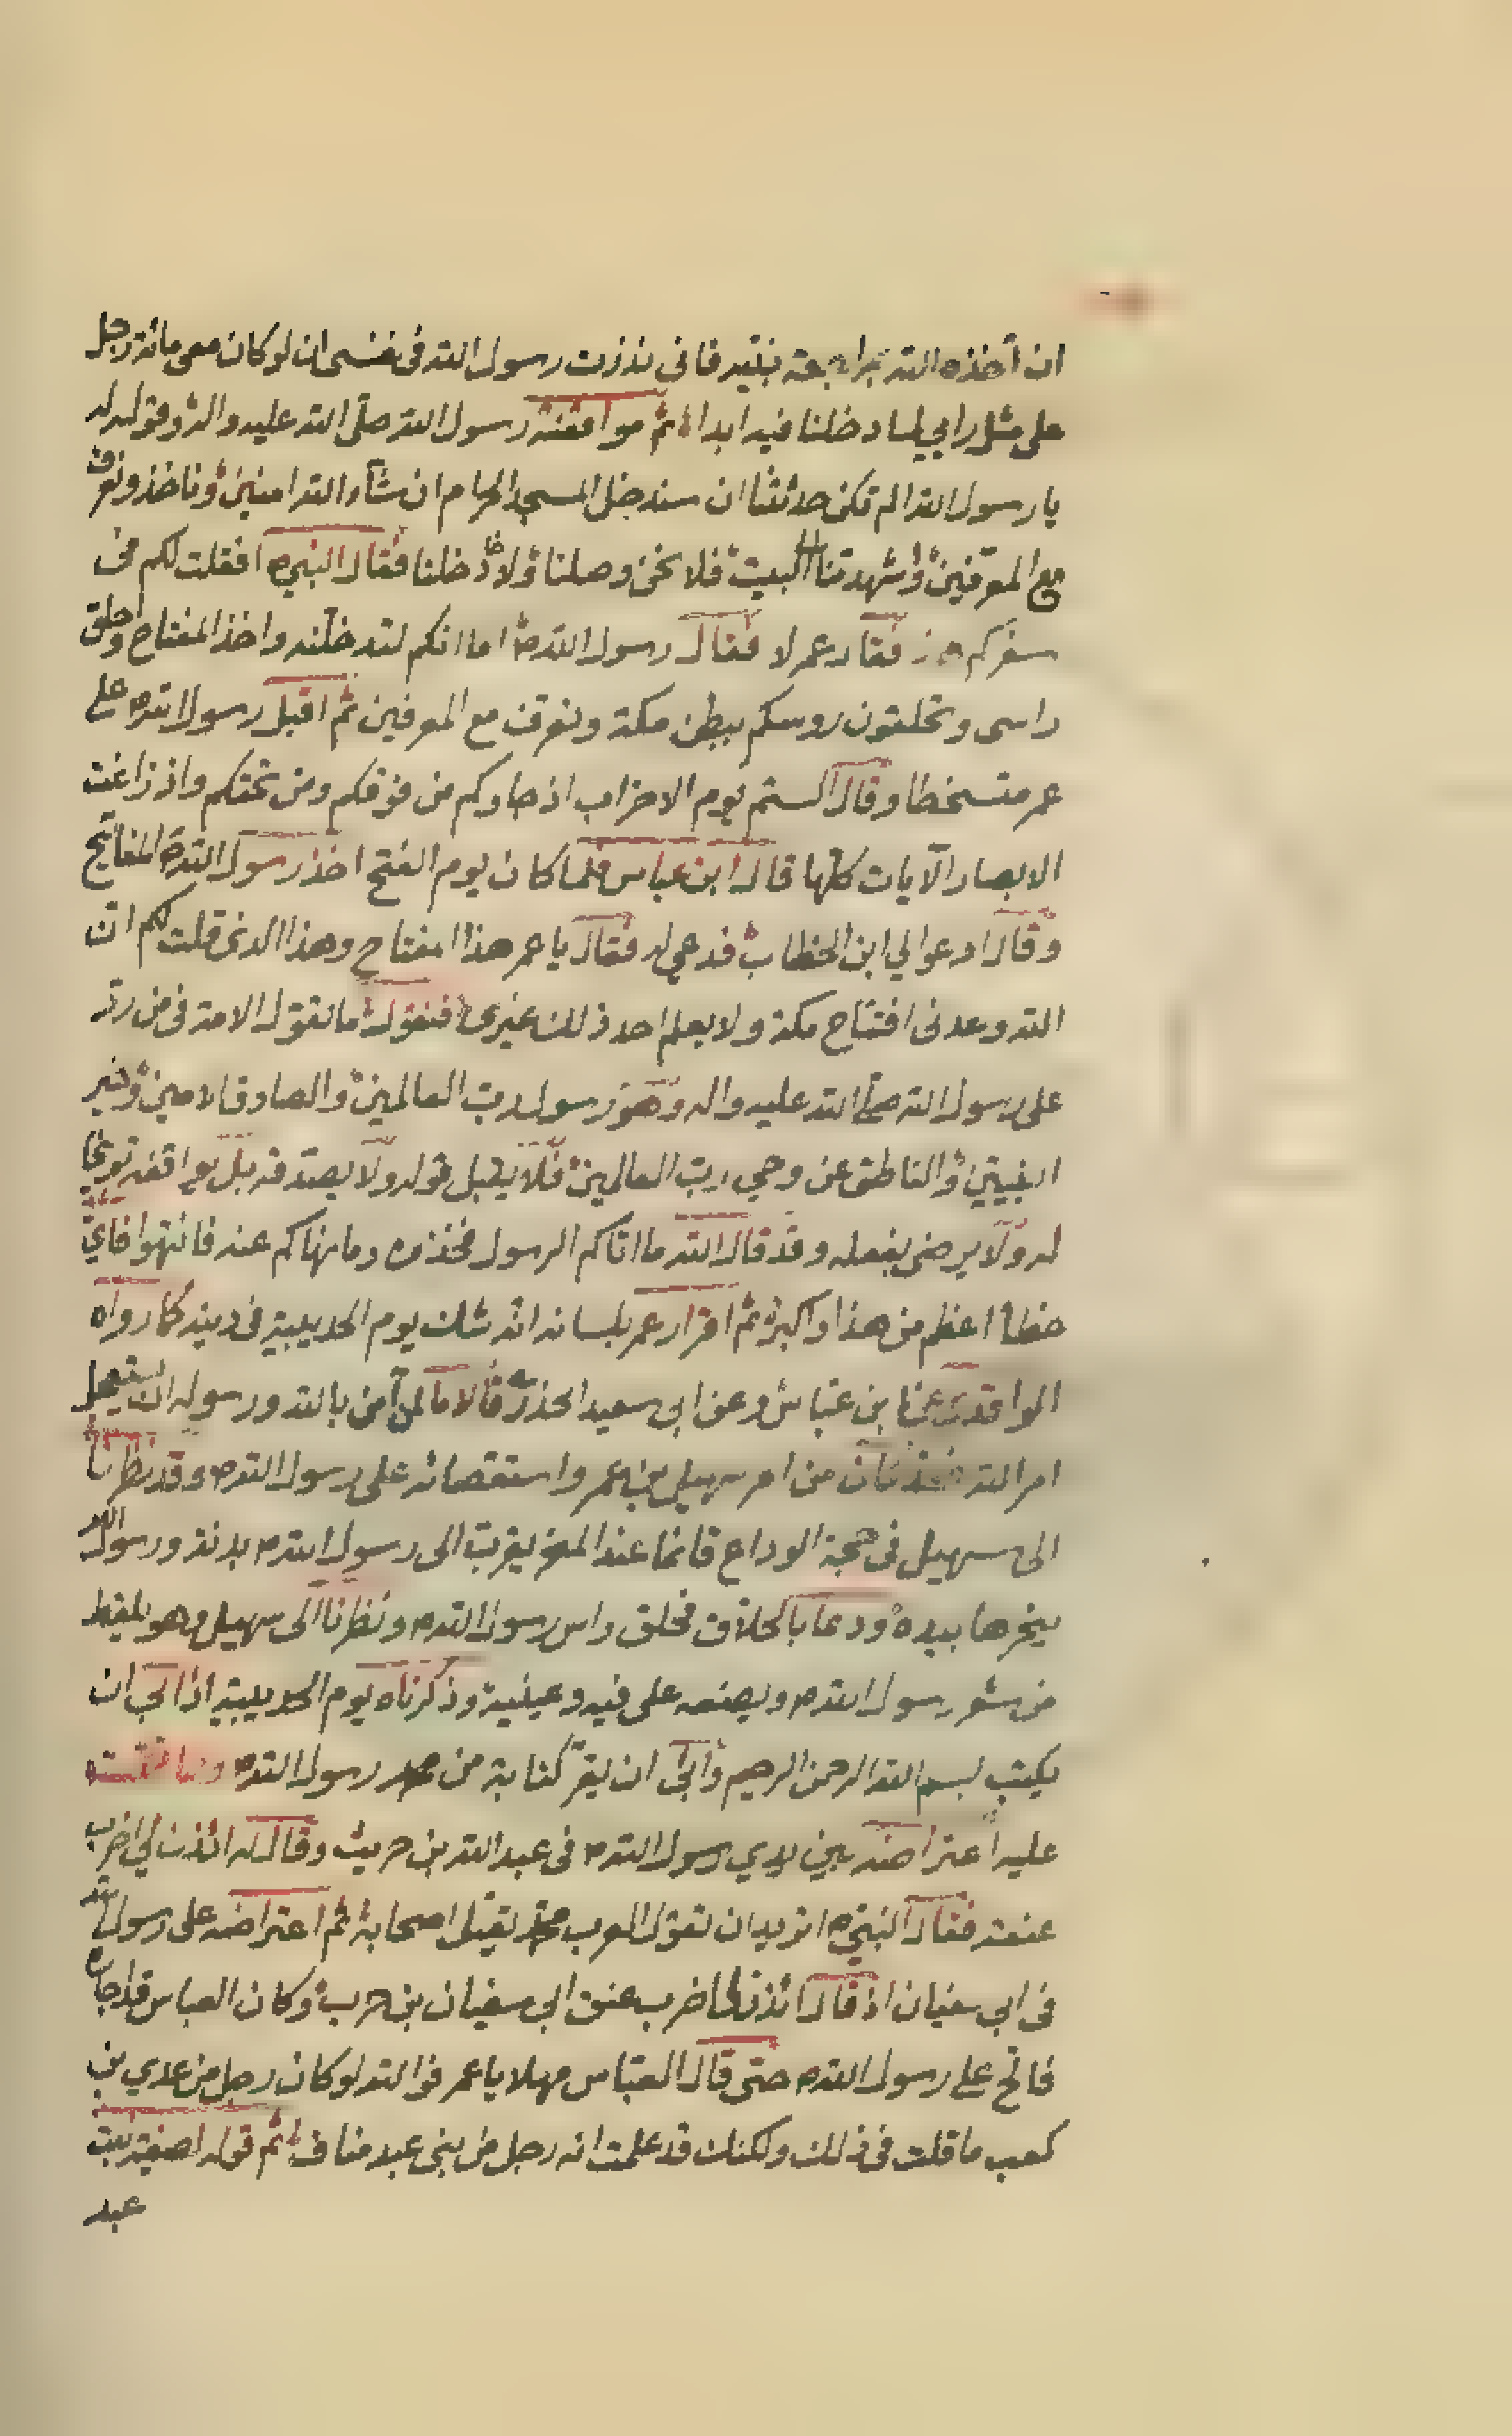 ان أخذه الله بمراجعة نبيه فاني نذرت رسول الله فى نفسى ان لو كان معى مائة رجل
على مثل رايي لما دخلنا فيه ابدا ثم موافقته رسول الله صلّى الله عليه واله وقوله له
يا رسول الله الم تكن حدثتنا ان سندخل المسجد الحرام ان شآء الله امنين وناخذ ونعرف
مع المعرّفين البيت فلا نحن وصلنا ولا دخلنا فقال النبيص اقلت لكم فى
سفركم فقال عمر لا فقال رسول اللهص اما انكم لتدخلنه واخذ المفتاح وحلق
راسى وتحلقون روسكم ببطن مكة ونعرف مع المعرفين ثم اقبل رسول اللهص على
عمر متسخطا وقال الستم يوم الاحزاب اذ جاوكم من فوقكم ومن تحتكم واذ زاغت
الابصار الآيات كلّها قال ابن عباس فلما كان يوم الفتح اخذ رسول اللهص المفاتيح
وقال ادعوا لي ابن الخطاب فدعي له فقال يا عمر هذا المفتاح وهذا الذى قلت لكم ان
الله وعدنى افتتاح مكة ولا يعلم احد ذلك غيرى فنقول ما تقول الامة فى من ردّ
على رسول الله صلّى الله عليه واله وهو رسول رب العالمين والصادق الامين وخير
النبيين والناطق عن وحي رب العالمين فلا يقبل قوله ولا يصدقه بل يواقفه توبيخا
له ولا يرضى بفعله وقد قال الله ما اتاكم الرسول فخذوه وما نهاكم عنه فانتهوا فاي
خطأ اعظم من هذا واكبر ثم اقرار عمر بلسانه انّه شك يوم الحديبية فى دينه كما رواه
الواقدى عن ابن عبّاس وعن ابى سعيد الخدرى قالا ما لمن آمن بالله ورسوله ان يستعجل
امر الله من امر سهيل بن عمر واستقصائه على رسول اللهص وقد نظرنا
الى سهيل فى حجة الوداع قائما عند المنحر يقرب الى رسول اللهص بدنة ورسول الله
ينحرها بيده ودعا بالحلاق فحلق راس رسول اللهص ونظرنا الى سهيل وهو يلتقط
من شعر رسول اللهص ويضعه على فيه وعينيه وذكرناه يوم الحديبية اذ ابى ان
يكتب بسم الله الرحمن الرحيم وأبى ان يقرّ كتابة من محمد رسول اللهص
عليه اعتراضه بين يدي رسول اللهص فى عبد الله بن حريث وقال له ائذن لي اضرب
عنقه فقال النبيص اتريد ان تقول العرب محمّد يقتل اصحابه ثم اعتراضه على رسول الله
فى ابى سفيان اذ قال ائذن لى اضرب عنق ابى سفيان بن حرب وكان العباس قد اجاره
فالح على رسول اللهص حتى قال العبّاس مهلا يا عمر فوالله لو كان رجل من عدي بن
كعب ما قلت فى ذلك ولكنك قد علمت انه رجل من بنى عبد مناف ثم قوله لصفية بنت
عبد